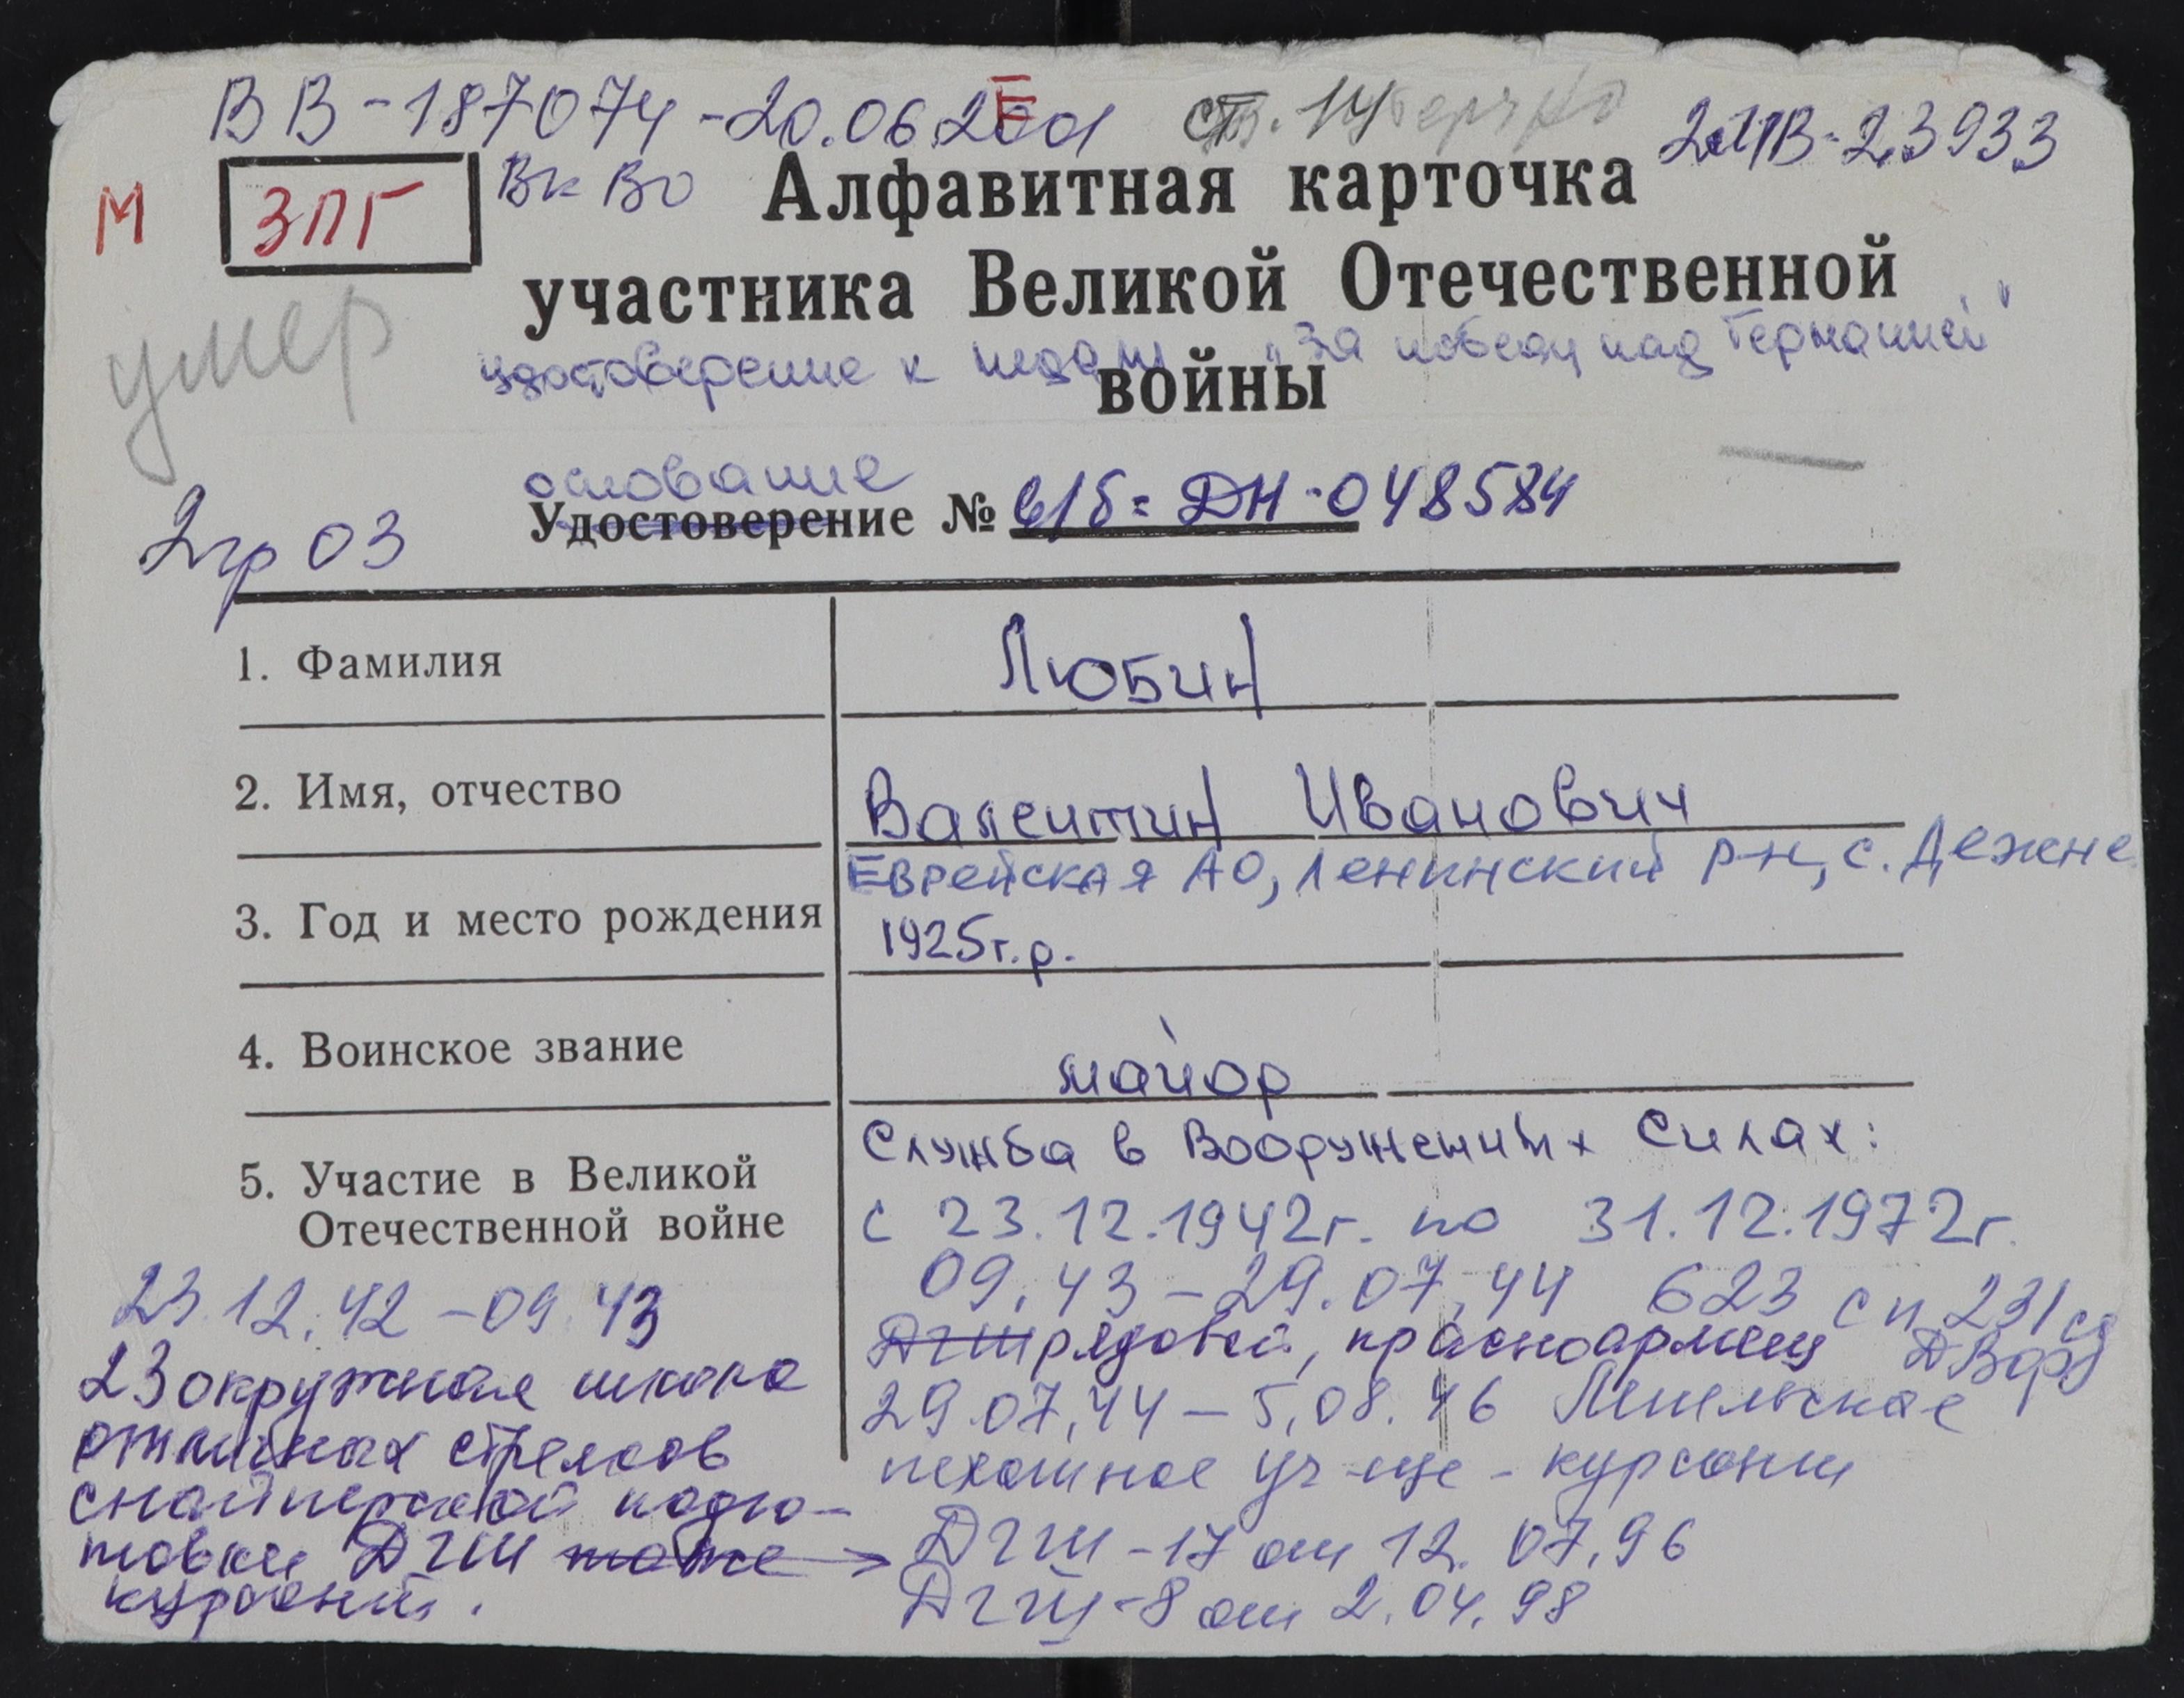 ВВ-187074-20.06.2001 ст. 14
2МВ-23933
Е
М
ЗПГ
ВкВО
Алфавитная карточка
участника Великой Отечественной
удостоверение к медали „За победу над Германией"
войны
умер
основание
2гр 03
Удостоверение № в/б: ДН-048584
1. Фамилия
Любин
2. Имя, отчество
Валентин Иванович
Еврейская АО, Ленинский р-н, с. Дежне
3. Год и место рождения
1925г.р.
4. Воинское звание
майор
5. Участие в Великой
Отечественной войне
Служба в Вооруженных Силах:
с 23.12.1942г. по 31.12.1972г.
09.43-29.07.44 623 сп 231 сд
ДГШ рядовой, красноармеец
29.07.44-5.08.46
пехотное уч-ще - курсант
ДГШ-17 от 12.07.96
ДГШ-8 от 2.04.98
23.12.42-09.43
23 окружная школа
отличных стрелков
снайперской подго-
товки ДГШ тоже
курсант.